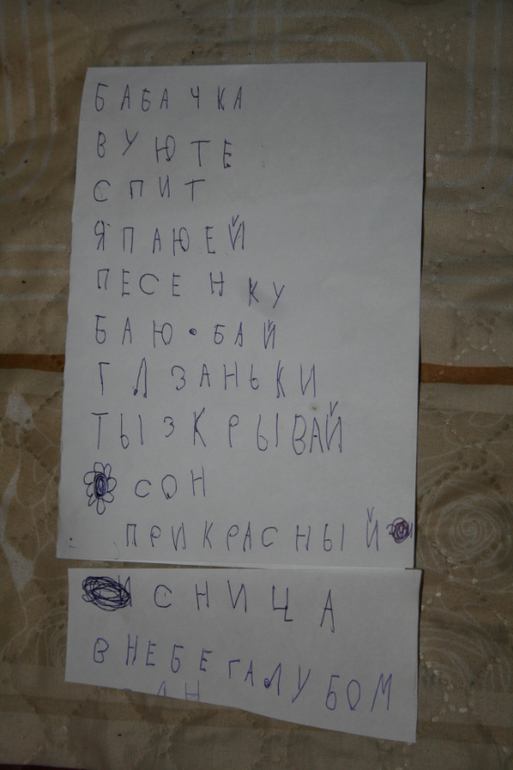 БАБАЧКА
ВУЮТЕ
СПИТ
ЯПАЮЕЙ
ПЕСЕНКУ
БАЮ-БАЙ
ГЛЗАНЬКИ
ТЫЗКРЫВАЙ
СОН
ПРИКРАСНЫЙ
СНИЦА
ВНЕБЕГАЛУБОМ